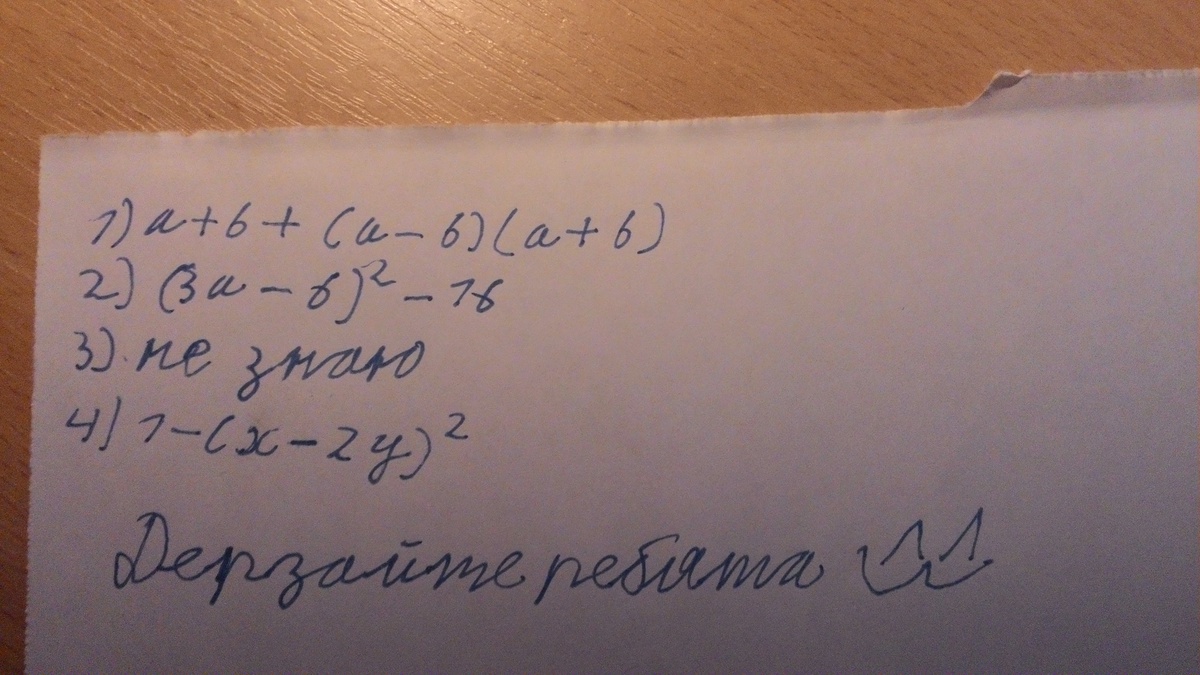 1) a+b+(a-b)(a+b)
2) (3a-b)²-16
3) не знаю
4) 1-(x-2y)²
Дерзайте ребята